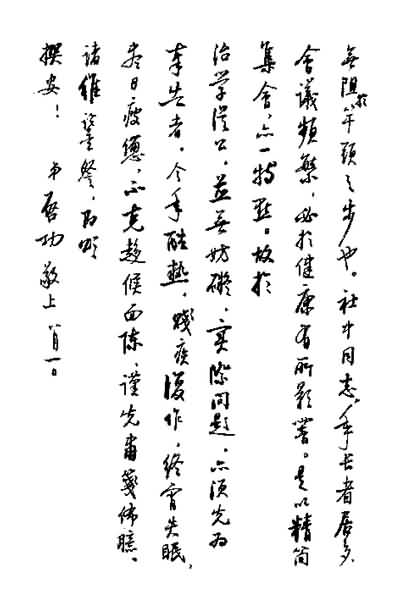 無阻於竿頭之步也。社中同志，年長者居多
會議頻繁，必於健康有所影響。是以精簡
集會，亦一特點。故於
治學從公，並無妨礙，實際問題，亦須先為
奉告者。今年酷熱，賤疾復作，終宵失眠，
盡日疲憊，不克趨候面陳，謹先肅箋佈臆。
諸維鑒詧，即頌
撰安！ 弟啟功敬上 八月一日